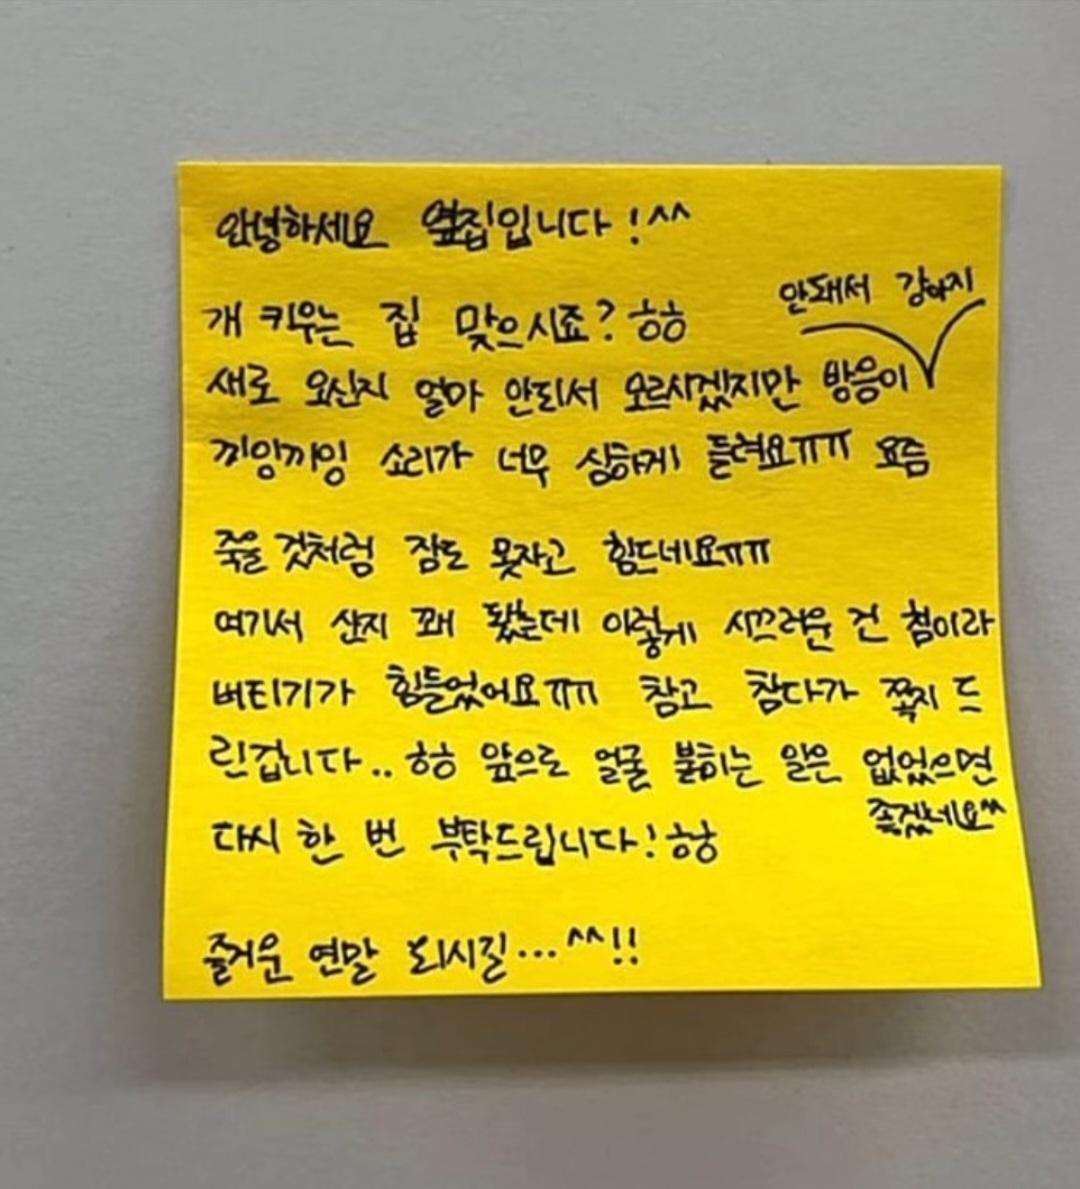 안녕하세요 옆집입니다!^^
개 키우는 집 맞으시죠? ㅎㅎ
안돼서 강아지
새로 오신지 얼마 안되서 모르시겠지만 방음이
끼잉끼잉 소리가 너무 심하게 들려요ㅠㅠ 요즘
죽을 것처럼 잠도 못자고 힘드네요ㅠㅠ
여기서 산지 꽤 됐는데 이렇게 시끄러운 건 첨이라
버티기가 힘들었어요ㅠㅠ 참고 참다가 쪽지 드
린겁니다.. ㅎㅎ 앞으로 얼굴 붉히는 일은 없었으면
좋겠네요^^
다시 한 번 부탁드립니다! ㅎㅎ
즐거운 연말 되시길...^^!!